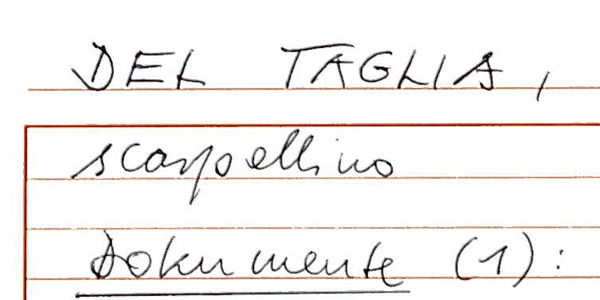 DEL TAGLIA,
scarpellino
Dokumente (1):